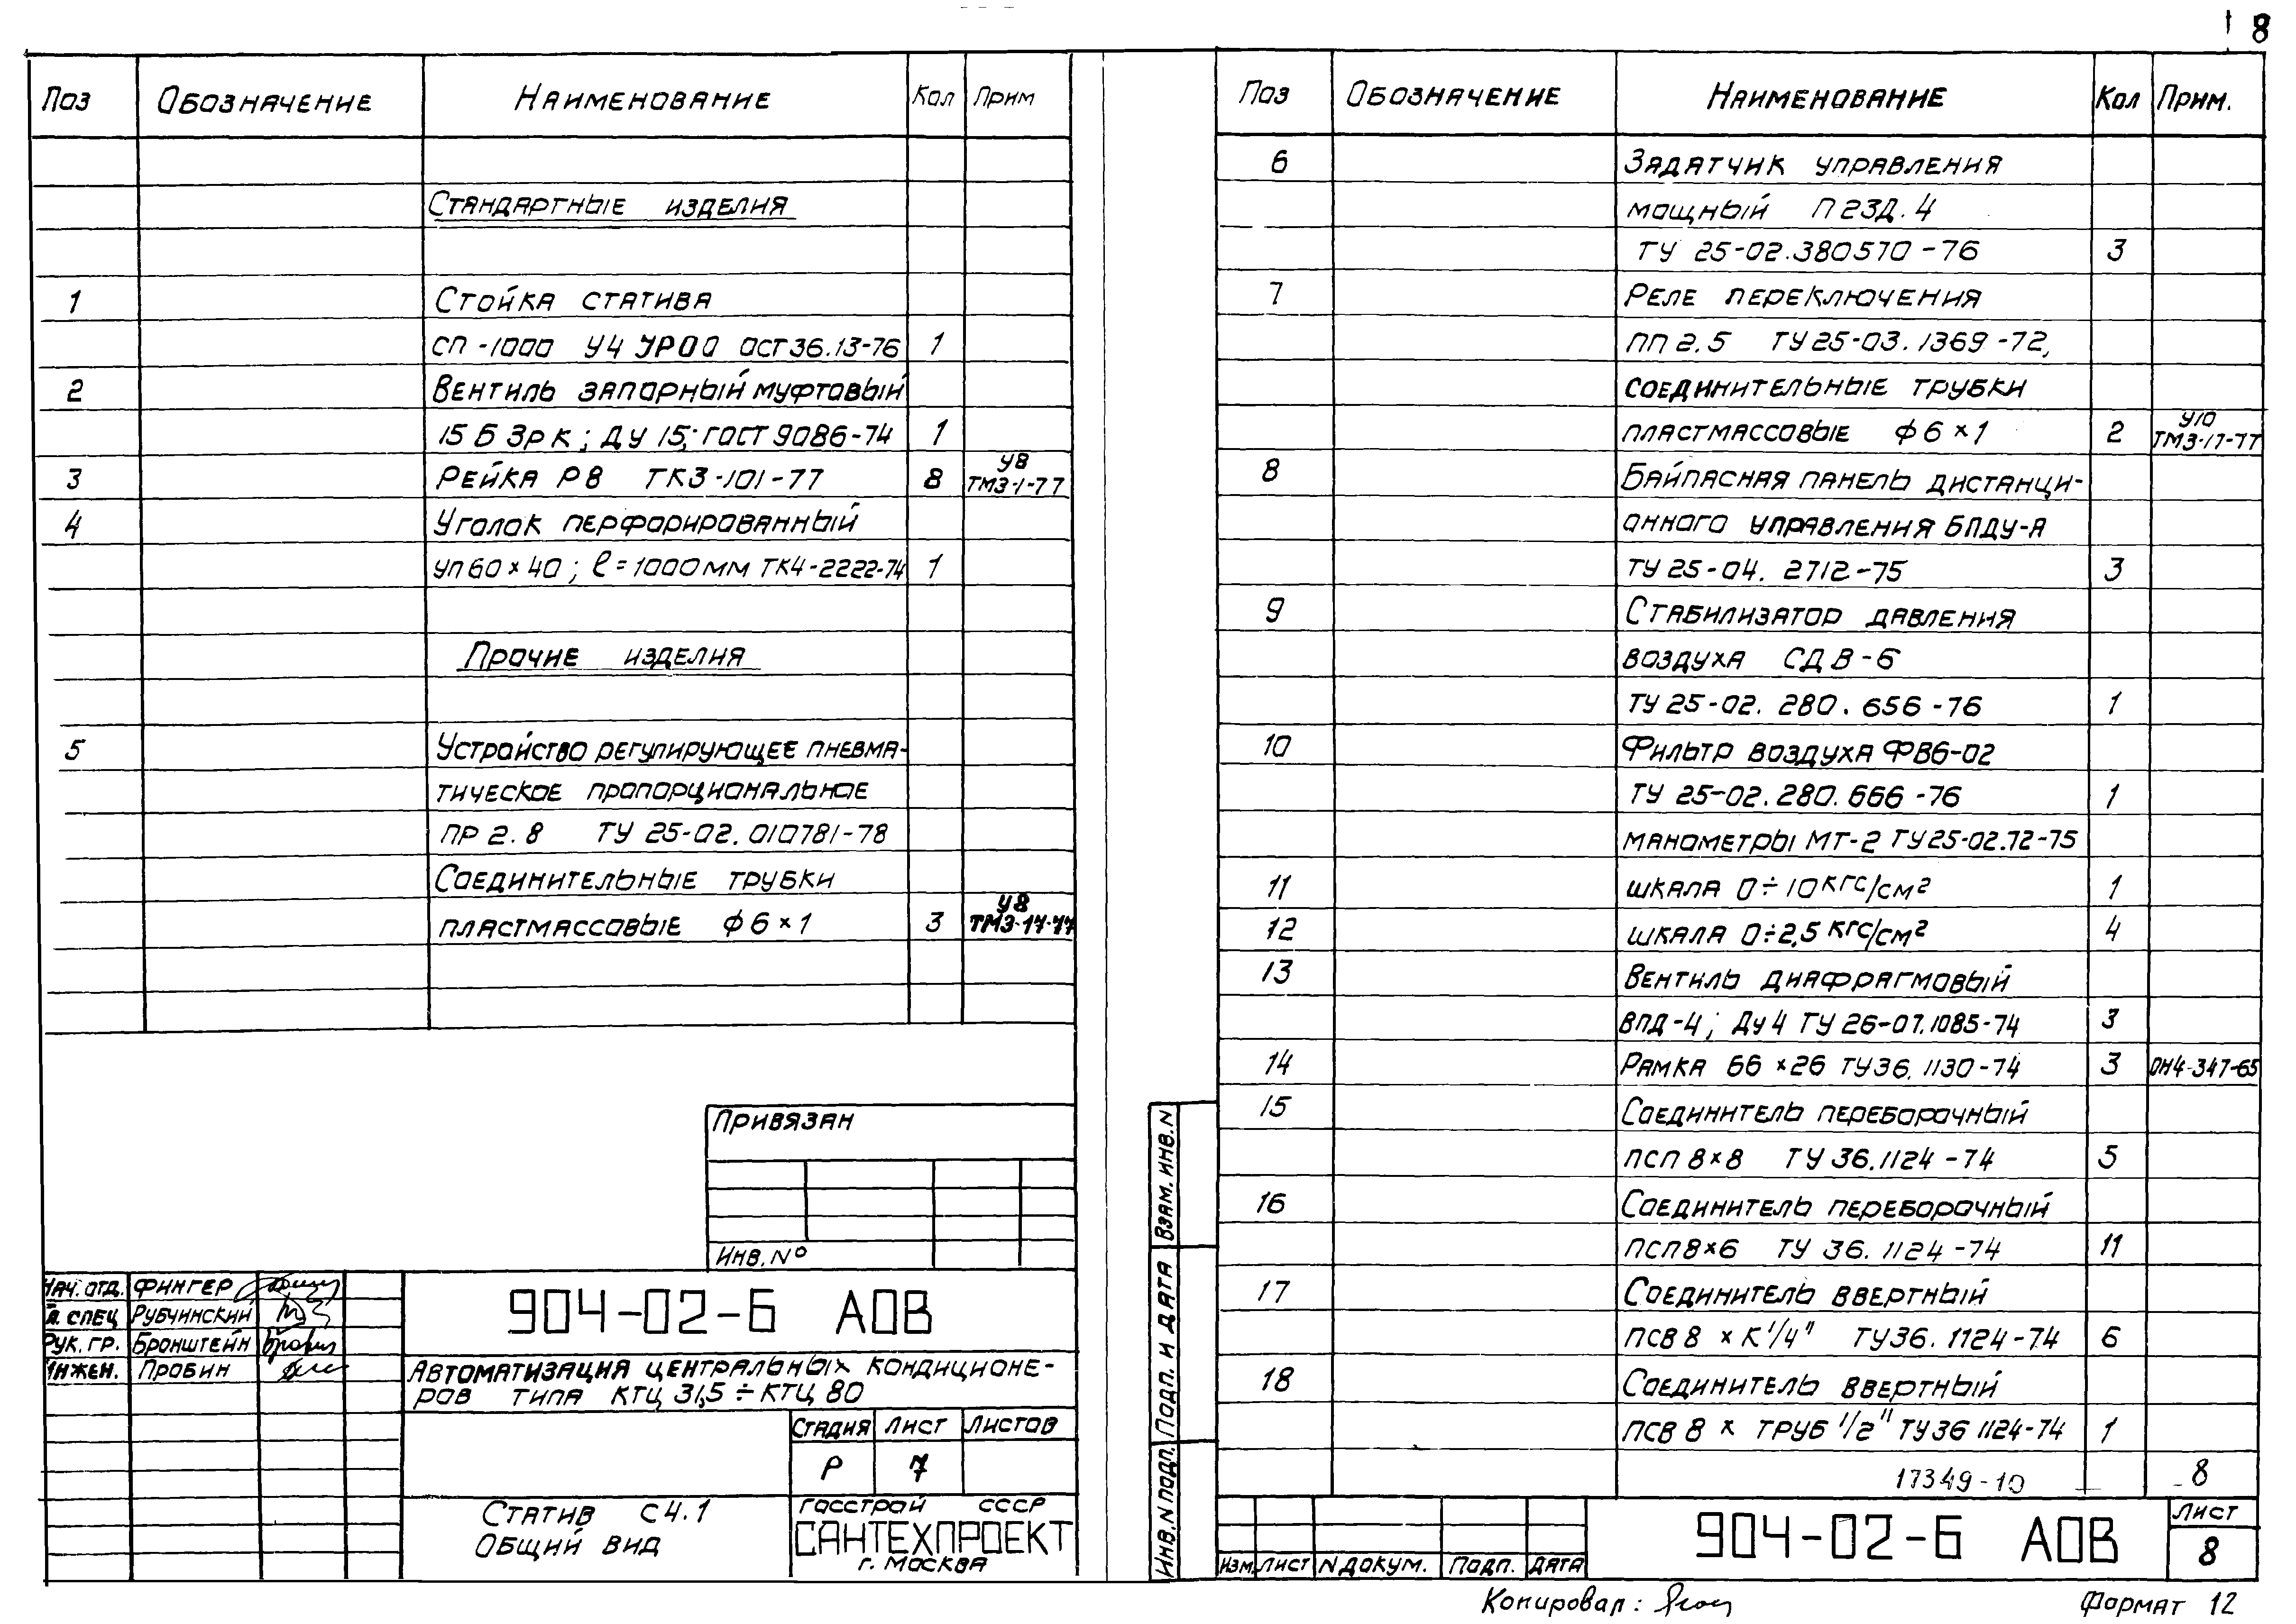 8
Поз Обозначение Наименование Кол Прим
Стандартные изделия
1 Стойка статива
СП-1000 У4 УР00 ОСТ36.13-76 1
2 Вентиль запорный муфтовый
15 Б 3р к; ДУ 15; ГОСТ 9086-74 1
3 Рейка Р8 ТК3-101-77 8 У8 ТМ3-1-77
4 Уголок перфорированный
УП 60×40; ℓ=1000мм ТК4-2222-74 1
Прочие изделия
5 Устройство регулирующее пневма-
тическое пропорциональное
ПР 2.8 ТУ 25-02.010781-78
Соединительные трубки
пластмассовые ф 6×1 3 У8 ТМ3-17-77
Привязан
Инв.№
Нач. отд. Фингер
Гл. спец Рубчинский
Рук. гр. Бронштейн
Инжен. Пробин
904-02-6 АОВ
Автоматизация центральных кондиционе-
ров типа КТЦ 31,5 ÷ КТЦ 80
Стадия Лист Листов
Р 7
Статив С4.1
Общий вид
Госстрой СССР
САНТЕХПРОЕКТ
г. Москва
Поз Обозначение Наименование Кол Прим.
6 Задатчик управления
мощный П23Д.4
ТУ 25-02.380570-76 3
7 Реле переключения
ПП 2.5 ТУ 25-03.1369-72,
соединительные трубки
пластмассовые ф 6×1 2 У10 ТМ3-17-77
8 Байпасная панель дистанци-
онного управления БПДУ-А
ТУ 25-04.2712-75 3
9 Стабилизатор давления
воздуха СДВ-6
ТУ 25-02.280.656-76 1
10 Фильтр воздуха ФВ6-02
ТУ 25-02.280.666-76 1
манометры МТ-2 ТУ 25-02.72-75
11 шкала 0÷10 кгс/см² 1
12 шкала 0÷2,5 кгс/см² 4
13 Вентиль диафрагмовый
ВПД-4; Ду 4 ТУ 26-07.1085-74 3
14 Рамка 66×26 ТУ36.1130-74 3 ОН4-347-65
15 Соединитель переборочный
ПСП 8×8 ТУ 36.1124-74 5
16 Соединитель переборочный
ПСП 8×6 ТУ 36.1124-74 11
17 Соединитель ввертный
ПСВ 8 × К 1/4" ТУ36.1124-74 6
18 Соединитель ввертный
ПСВ 8 × ТРУБ 1/2" ТУ36 1124-74 1
17349-10 8
Взам. инв. N
Подп. и дата
Инв. N подл.
Изм. Лист N докум. Подп. Дата
904-02-6 АОВ
Лист
8
Копировал:
Формат 12